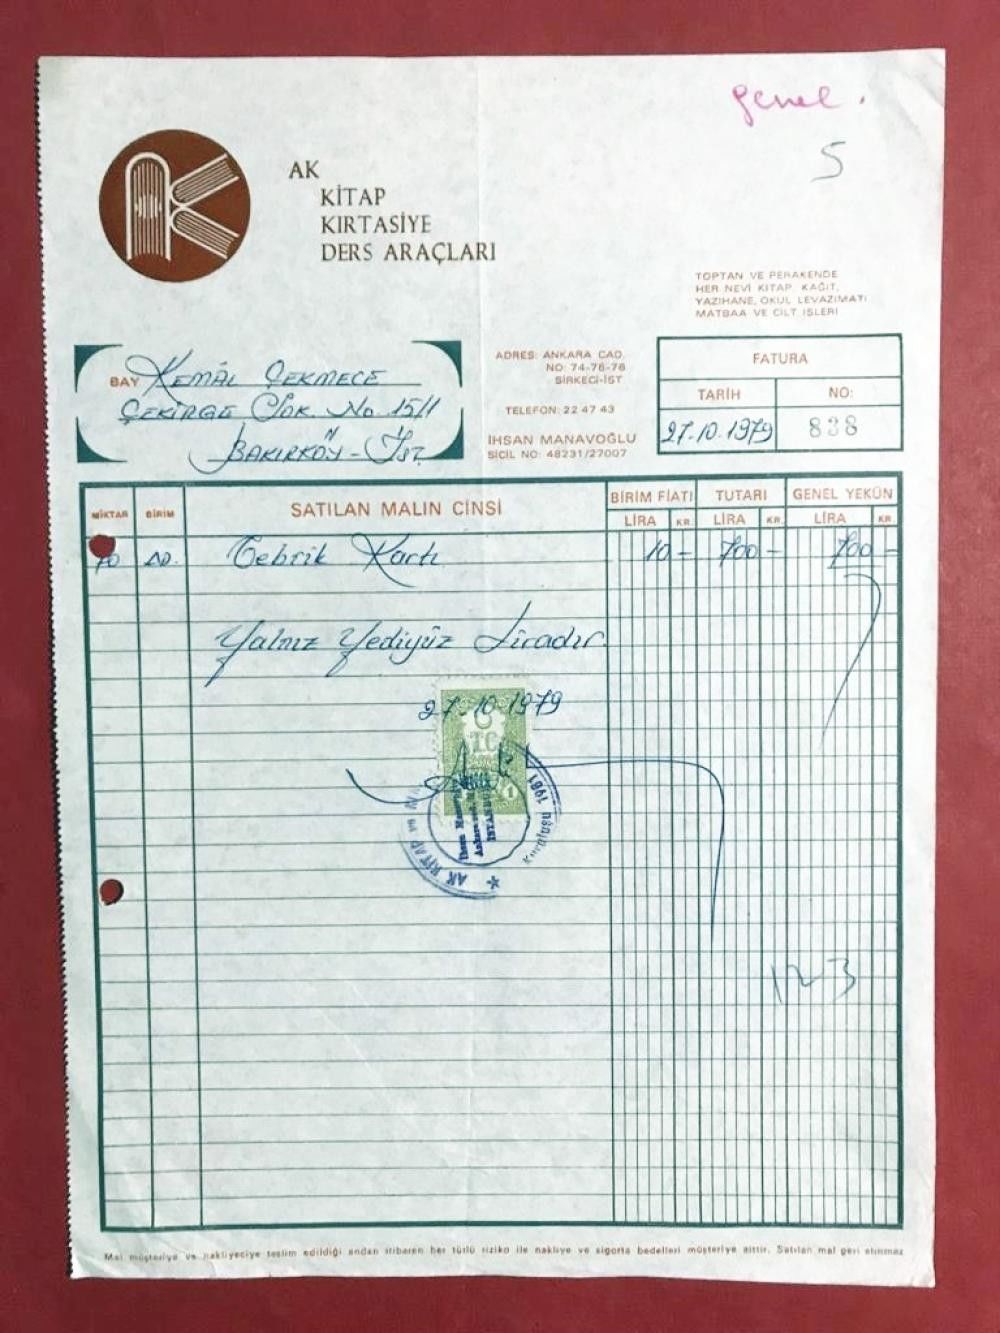 genel.
5
AK
KİTAP
KIRTASİYE
DERS ARAÇLARI
TOPTAN VE PERAKENDE
HER NEVİ KİTAP, KAĞIT,
YAZIHANE, OKUL LEVAZIMATI
MATBAA VE CİLT İŞLERİ
BAY Kemâl Çekmece
Çekirge Sok. No. 15/1
Bakırköy - İst.
ADRES: ANKARA CAD.
NO: 74-76-78
SİRKECİ-İST
TELEFON: 22 47 43
İHSAN MANAVOĞLU
SİCİL NO: 48231/27007
FATURA
TARİH NO:
27.10.1979 838
MİKTAR BİRİM SATILAN MALIN CİNSİ BİRİM FİATI TUTARI GENEL YEKÜN
LİRA KR. LİRA KR. LİRA KR.
70 AD. Tebrik Kartı 10 - 700 - 700 -
Yalnız Yediyüz Liradır.
27.10.1979
TC
1
Kuruluşu 1981
İSTANBUL
★ AK KİTAP
123
Mal müşteriye ve nakliyeciye teslim edildiği andan itibaren her türlü riziko ile nakliye ve sigorta bedelleri müşteriye aittir. Satılan mal geri alınmaz